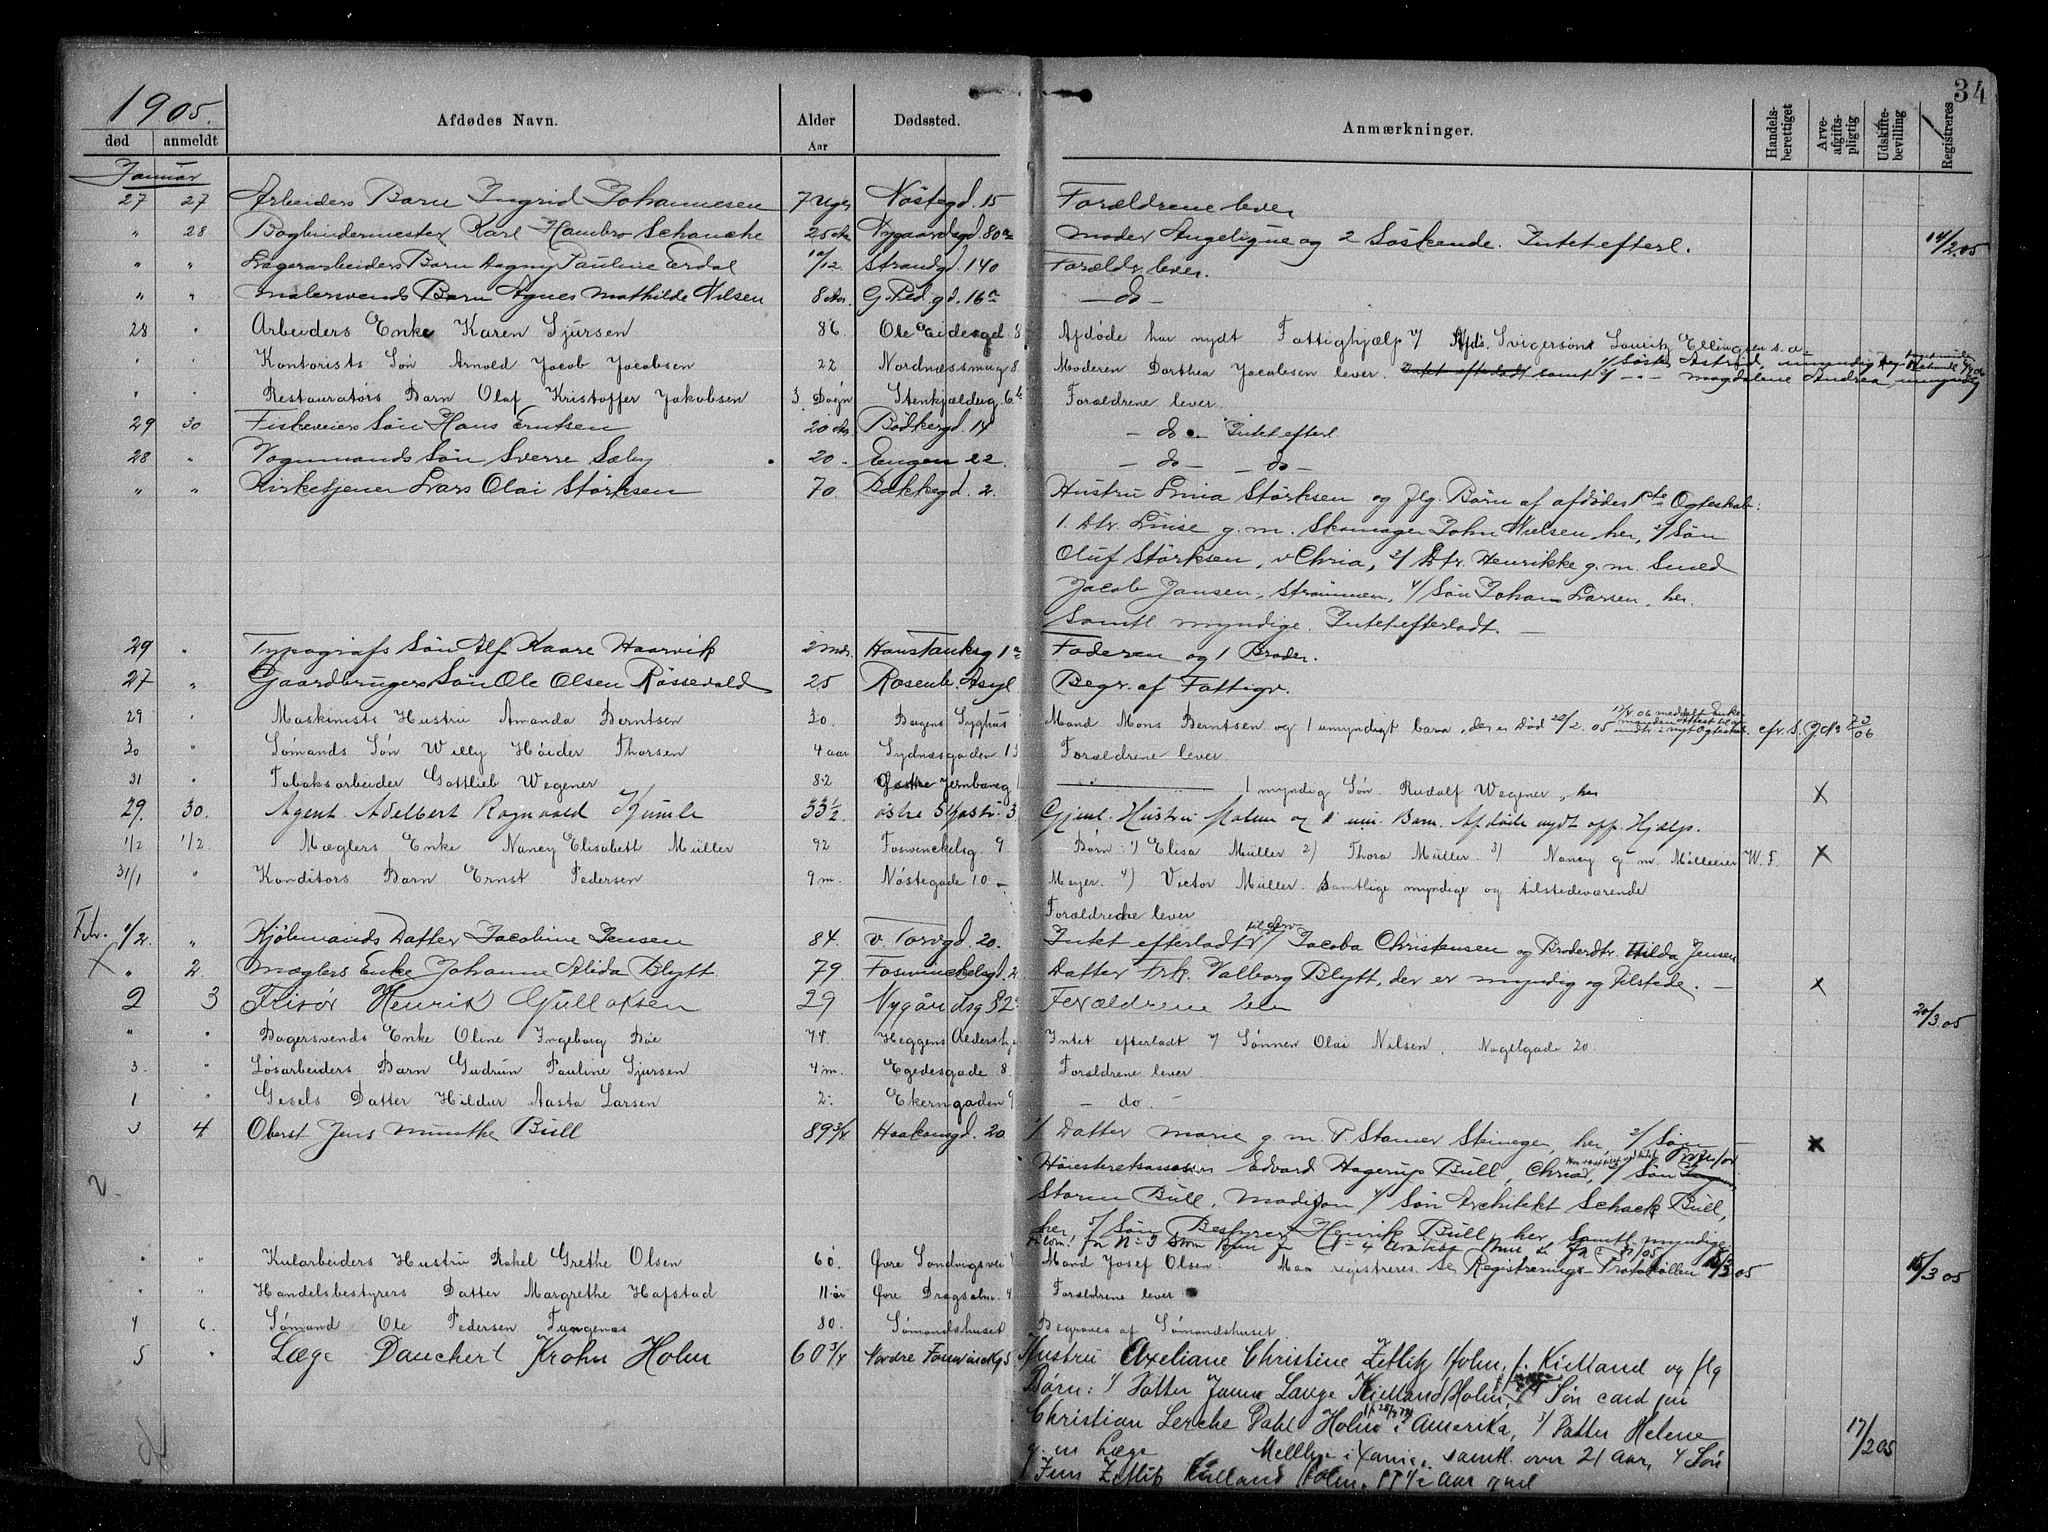 34
1905.
død anmeldt Afdødes Navn. Alder Aar Dødssted. Anmærkninger. Handels-berettiget Arve-afgifts-pligtig Udskifte-bevilling Registreres
Januar
27 27 Arbeiders Barn Ingrid Johannesen 7 Uger Nöstegd. 15 Forældrene lever
" 28 Bogbindermester Karl Hambro Schanche 25 Aar Nygaardsgd. 80 Moder Angelique og 2 Söskende. Intet efterl. 14/2.05
" " Lagerarbeiders Barn Aagny Pauline Erdal 10/12. Strandgd. 140 Forældr lever.
" " Malersvends Barn Agnes Mathilde Nilsen 8 Mdr. G. Ped. gd. 16a — do —
28 " Arbeiders Enke Karen Sjursen 86. Ole Eidesgd 8 Afdöde har nydt Fattighjælp Afds. Svigersön Lauritz Ellingsen s. a
" " Kontorists Sön Arnold Jacob Jacobsen 22 Nordnæssmug 8. Moderen Dorthea Jacobsen lever. Intet efterladt samt 1/ Söster Astrid, umyndig 2/ — Magdalene Andrea umyndig
" " Restauratörs Barn Olaf Kristoffer Jakobsen 3 Dögn Stenkjælderg. 6b Forældrene lever.
29 30 Fiskeveiers Sön Hans Erntsen 20 Aar Bödkergd. 14 — do — Intet efterl
28 " Vognmands Sön Sverre Sæby 20 - Engen 22. — do — — do —
" " Kirketjener Lars Olai Störksen 70. Bakkegd. 2. Hustru Lina Störksen og flg. Börn af afdödes 1ste Ægteskab:
1. Dtr. Luise g. m. Skomager John Nielsen her, 2/ Sön
Oluf Störksen, v Chria, 3/ Dtr. Henrikke g. m. Smed
Jacob Jansen, Strömmen, 4/ Sön Johan Larsen, her.
Samtl myndige. Intet efterladt. —
29 " Typografs Sön Alf Kaare Haarvik 2 Mdr. Hans Tanksg 1a Faderen og 1 Broder.
27 " Gaardbrugers Sön Ole Olsen Rössevold 25 Rosenb. Asyl Begr. af Fattigv.
29 " Maskinists Hustru Amanda Berntsen 30. Bergens Syghus Mand Mons Berntsen og 1 umyndigt barn, der er död 22/2.05
30 " Sömands Sön Willy Höider Thorsen 4 aar Sydnæsgaden 13 Forældrene lever
31 " Tobaksarbeider Gottlieb Wegener 82 Östre Jernbaneg 1 1 myndig Sön Rudolf Wegener, her X
29. 30. Agent Adelbert Ragnvald Kumle 33½ östre Skostr. 3 Gjenl. Hustru Malm og 1 um. Barn. Afdöde nydt off. Hjælp.
1/2 1/2 Mæglers Enke Nancy Elisabeth Müller 92 Foswinckelsg. 9. Börn: 1) Elisa Müller 2) Thora Müller 3) Nancy g. m. Mölleeier W. F. X
31/1 " Konditors Barn Ernst Pedersen 9 m. Nöstegade 10 — Meyer. 4) Victor Müller. Samtlige myndige og tilstedeværende
Forældrene lever
Febr. 1/2. " Kjöbmands Datter Jacobine Jensen 84. v. Torvgd. 20. Intet efterladt Jacoba Christensen og Broderdtr. Hilda Jensen
X " 2. Mæglers Enke Johanne Alida Blytt 79 Foswinckelsgd. 2 Datter Frk. Valborg Blytt, der er myndig og tilstede. — X
2 3 Frisör Henrik Gullaksen 29 Nygårdsg 32 Forældrene lever 20/3.05
" " Bagersvends Enke Oline Ingeborg Böe 74. Heggens Aldershj Intet efterladt Sönnen Olai Nilsen, Nagelgade 20.
3. " Lösarbeiders Barn Gudrun Pauline Sjursen 4 m. Egedesgade 8. Forældrene lever
1 " Gesels Datter Hildur Aasta Larsen 2. Ekerngaden 9 — do. —
3 4. Oberst Jens Munthe Bull 89 3/4 Haakonsgd. 20 1/ Datter Marie g. m. P. Stamer Steineger, her, 2/ Sön — X
Höiesteretsassessor Edvard Hagerup Bull, Chria, 3/ Sön
Storm Bull, Madison 4/ Sön Architekt Schack Bull,
her 5/ Sön Bestyrer Henrik Bull, her, Samtl. myndige.
" " Kularbeiders Hustru Rakel Grethe Olsen 60 Övre Sandvigsvei Mand Josef Olsen. Maa registreres. Se Registrerings-Protokollen 15/3 05 15/3 05
" " Handelsbestyrers Datter Margrethe Hafstad 11 år Övre Dragsalm. 4 Forældrene lever
4 6. Sömand Ole Pedersen Fungenæs 80. Sömandshuset Begraves af Sömandshuset.
5 " Læge Danckert Krohn Holm 60 3/4 Nordre Foswinckelsg 5 Hustru Axeliane Christine Zetlitz Holm, f. Kielland og flg
Börn: 1/ Datter Janna Lange Kielland Holm, 2/ Sön cand jur
Christian Lerche Dahl Holm i Amerika, 3/ Datter Helene
g. m Læge Mellbye i Xania. samtl. over 21 Aar, 4 Sön 17/2 05
Jens Zetlitz Kielland Holm. 17½ Aar gml